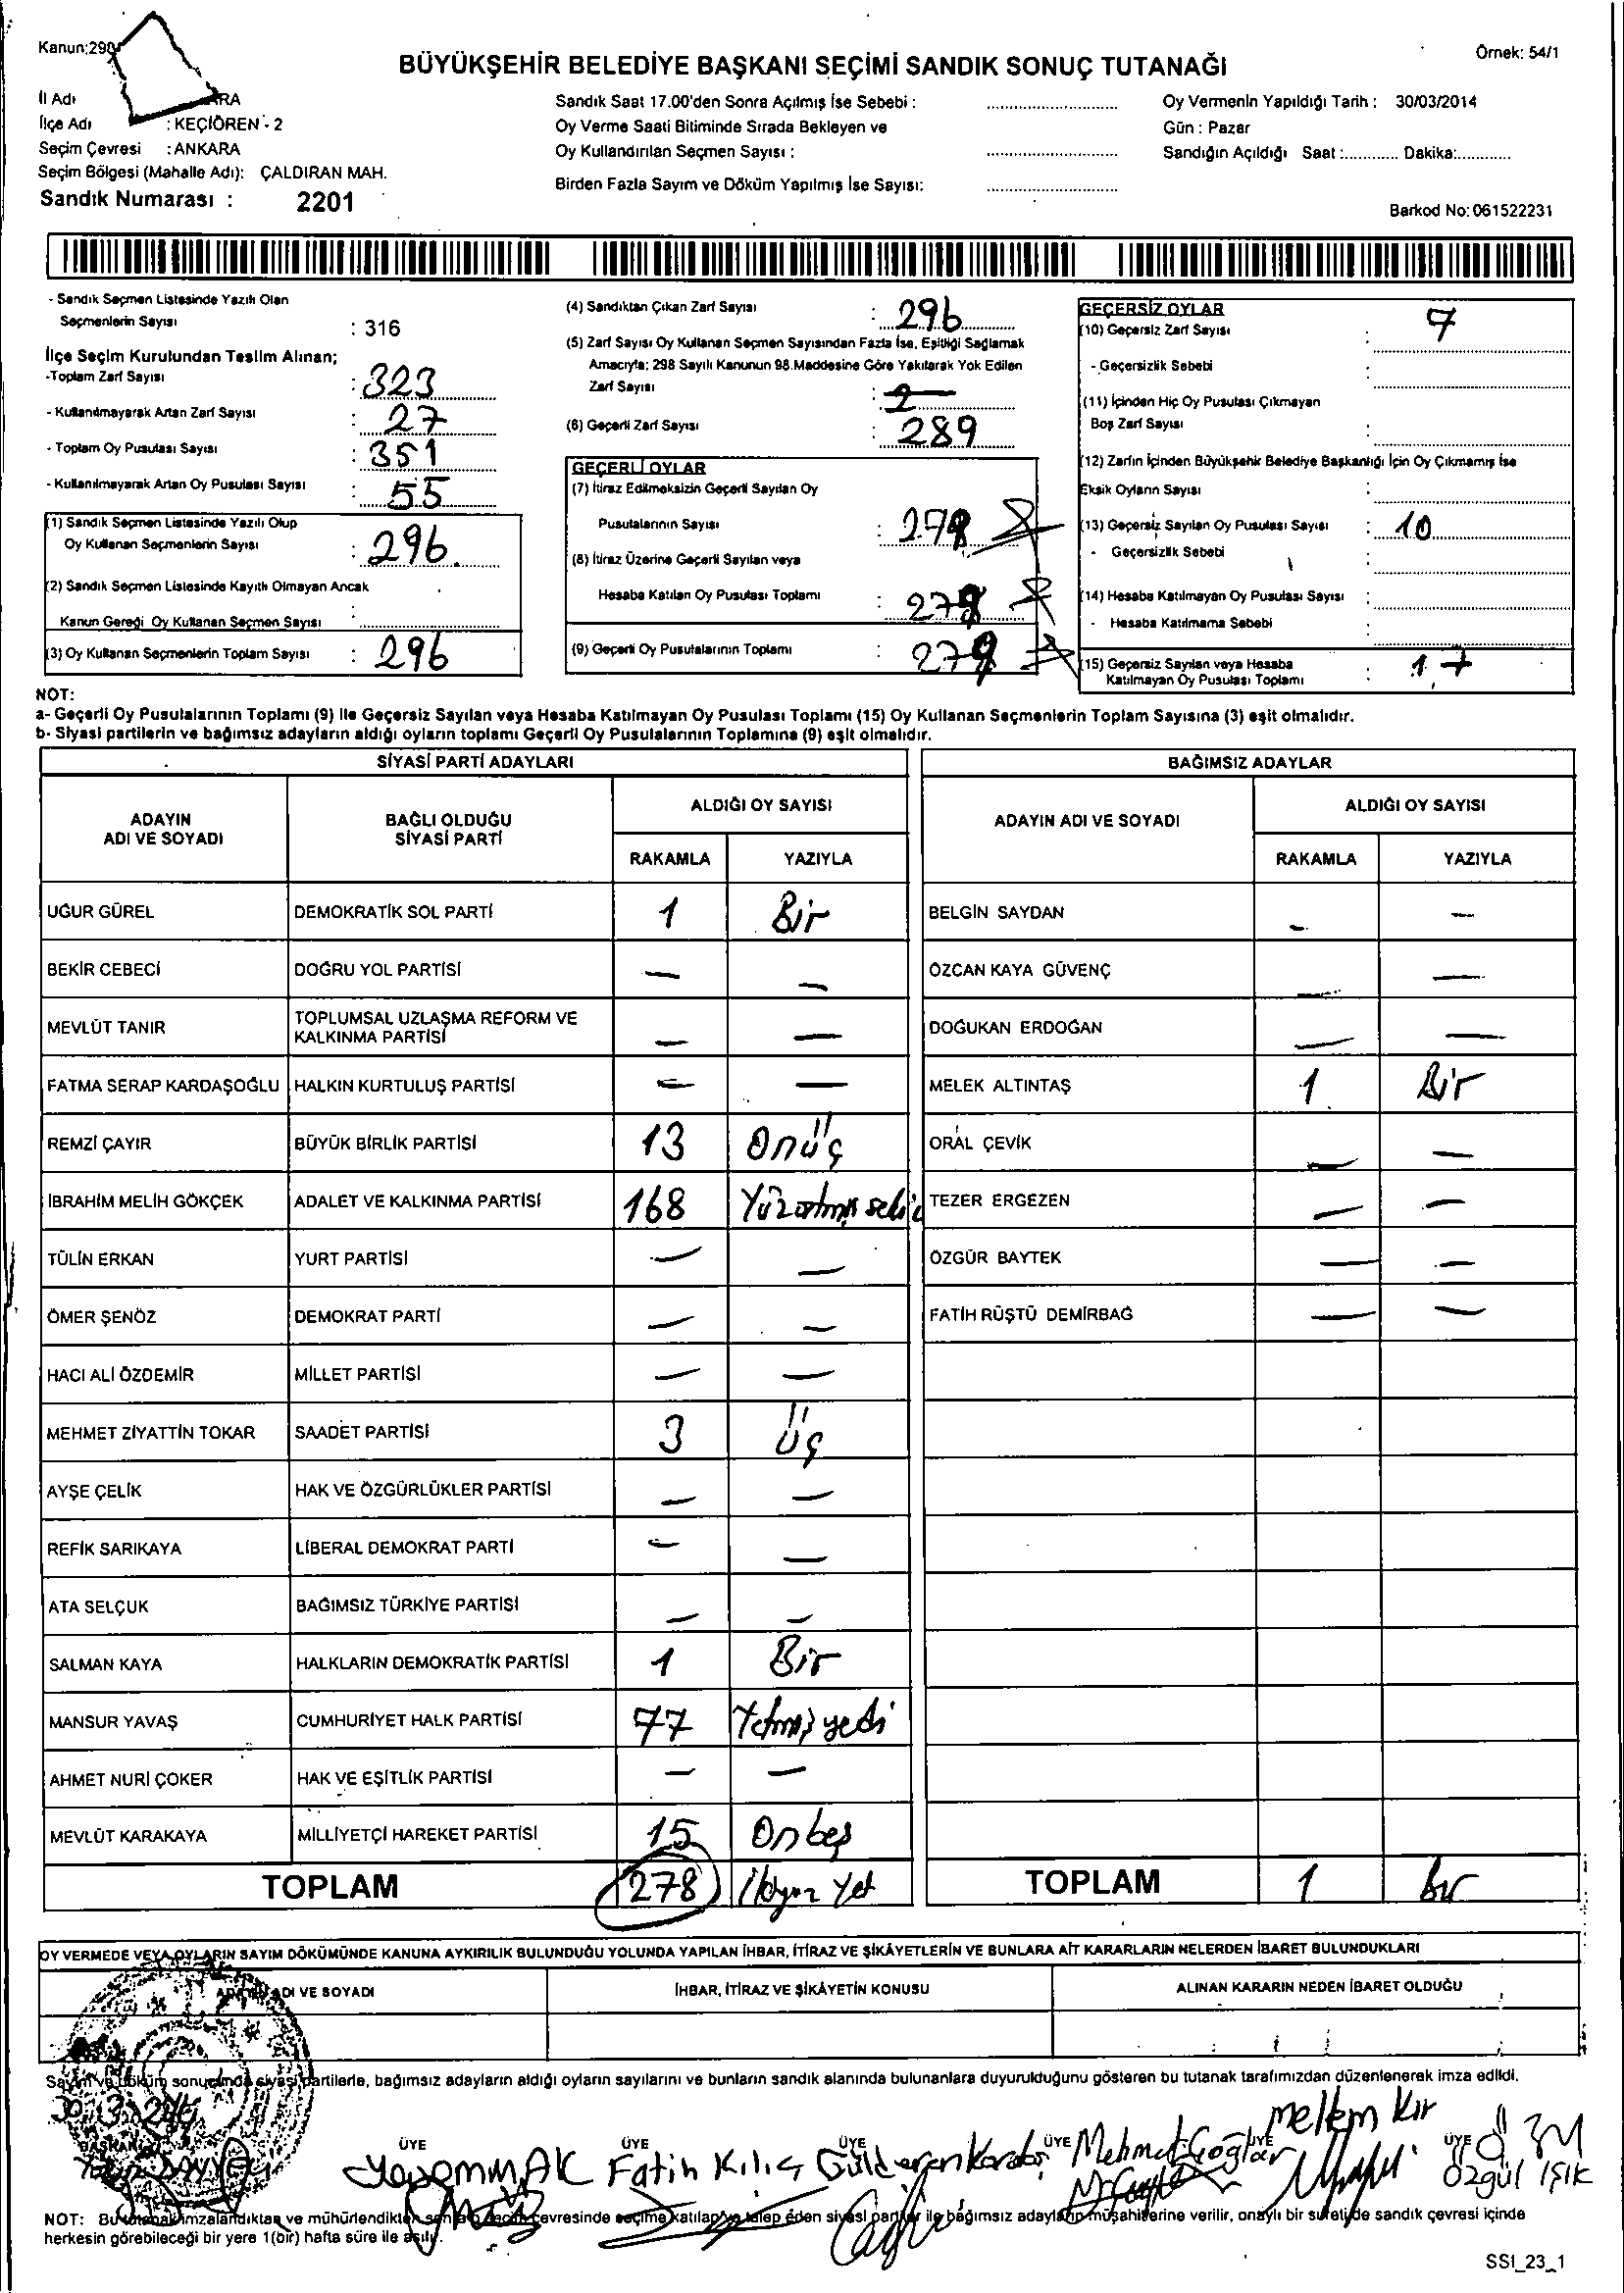 Kanun:298
Örnek: 54/1
BÜYÜKŞEHİR BELEDİYE BAŞKANI SEÇİMİ SANDIK SONUÇ TUTANAĞI
İl Adı
İlçe Adı : KEÇİÖREN - 2
Seçim Çevresi : ANKARA
Seçim Bölgesi (Mahalle Adı): ÇALDIRAN MAH.
Sandık Numarası : 2201
Sandık Saat 17.00'den Sonra Açılmış İse Sebebi :
Oy Verme Saati Bitiminde Sırada Bekleyen ve
Oy Kullandırılan Seçmen Sayısı :
Birden Fazla Sayım ve Döküm Yapılmış İse Sayısı:
Oy Vermenin Yapıldığı Tarih : 30/03/2014
Gün : Pazar
Sandığın Açıldığı Saat :............ Dakika:............
Barkod No: 061522231
- Sandık Seçmen Listesinde Yazılı Olan
Seçmenlerin Sayısı : 316
İlçe Seçim Kurulundan Teslim Alınan;
-Toplam Zarf Sayısı : 323
- Kullanılmayarak Artan Zarf Sayısı : 27
- Toplam Oy Pusulası Sayısı : 351
- Kullanılmayarak Artan Oy Pusulası Sayısı : 55
(1) Sandık Seçmen Listesinde Yazılı Olup
Oy Kullanan Seçmenlerin Sayısı : 296
(2) Sandık Seçmen Listesinde Kayıtlı Olmayan Ancak
Kanun Gereği Oy Kullanan Seçmen Sayısı :
(3) Oy Kullanan Seçmenlerin Toplam Sayısı : 296
(4) Sandıktan Çıkan Zarf Sayısı : 296
(5) Zarf Sayısı Oy Kullanan Seçmen Sayısından Fazla İse, Eşitliği Sağlamak
Amacıyla; 298 Sayılı Kanunun 98.Maddesine Göre Yakılarak Yok Edilen
Zarf Sayısı :
(6) Geçerli Zarf Sayısı : 289
GEÇERLİ OYLAR
(7) İtiraz Edilmeksizin Geçerli Sayılan Oy
Pusulalarının Sayısı : 279
(8) İtiraz Üzerine Geçerli Sayılan veya
Hesaba Katılan Oy Pusulası Toplamı : 279
(9) Geçerli Oy Pusulalarının Toplamı : 279
GEÇERSİZ OYLAR
(10) Geçersiz Zarf Sayısı : 7
- Geçersizlik Sebebi :
(11) İçinden Hiç Oy Pusulası Çıkmayan
Boş Zarf Sayısı :
(12) Zarfın İçinden Büyükşehir Belediye Başkanlığı İçin Oy Çıkmamış İse
Eksik Oyların Sayısı :
(13) Geçersiz Sayılan Oy Pusulası Sayısı : 10
- Geçersizlik Sebebi :
(14) Hesaba Katılmayan Oy Pusulası Sayısı :
- Hesaba Katılmama Sebebi :
(15) Geçersiz Sayılan veya Hesaba
Katılmayan Oy Pusulası Toplamı : 17
NOT:
a- Geçerli Oy Pusulalarının Toplamı (9) ile Geçersiz Sayılan veya Hesaba Katılmayan Oy Pusulası Toplamı (15) Oy Kullanan Seçmenlerin Toplam Sayısına (3) eşit olmalıdır.
b- Siyasi partilerin ve bağımsız adayların aldığı oyların toplamı Geçerli Oy Pusulalarının Toplamına (9) eşit olmalıdır.
SİYASİ PARTİ ADAYLARI
ADAYIN ADI VE SOYADI BAĞLI OLDUĞU SİYASİ PARTİ ALDIĞI OY SAYISI
RAKAMLA YAZIYLA
UĞUR GÜREL DEMOKRATİK SOL PARTİ 1 Bir
BEKİR CEBECİ DOĞRU YOL PARTİSİ — —
MEVLÜT TANIR TOPLUMSAL UZLAŞMA REFORM VE KALKINMA PARTİSİ — —
FATMA SERAP KARDAŞOĞLU HALKIN KURTULUŞ PARTİSİ — —
REMZİ ÇAYIR BÜYÜK BİRLİK PARTİSİ 13 Onüç
İBRAHİM MELİH GÖKÇEK ADALET VE KALKINMA PARTİSİ 168 Yüzatmışsekiz
TÜLİN ERKAN YURT PARTİSİ — —
ÖMER ŞENÖZ DEMOKRAT PARTİ — —
HACI ALİ ÖZDEMİR MİLLET PARTİSİ — —
MEHMET ZİYATTİN TOKAR SAADET PARTİSİ 3 Üç
AYŞE ÇELİK HAK VE ÖZGÜRLÜKLER PARTİSİ — —
REFİK SARIKAYA LİBERAL DEMOKRAT PARTİ — —
ATA SELÇUK BAĞIMSIZ TÜRKİYE PARTİSİ — —
SALMAN KAYA HALKLARIN DEMOKRATİK PARTİSİ 1 Bir
MANSUR YAVAŞ CUMHURİYET HALK PARTİSİ 77 Yetmişyedi
AHMET NURİ ÇOKER HAK VE EŞİTLİK PARTİSİ — —
MEVLÜT KARAKAYA MİLLİYETÇİ HAREKET PARTİSİ 15 Onbeş
TOPLAM 278 İkiyüz Yet
BAĞIMSIZ ADAYLAR
ADAYIN ADI VE SOYADI ALDIĞI OY SAYISI
RAKAMLA YAZIYLA
BELGİN SAYDAN — —
ÖZCAN KAYA GÜVENÇ — —
DOĞUKAN ERDOĞAN — —
MELEK ALTINTAŞ 1 Bir
ORAL ÇEVİK — —
TEZER ERGEZEN — —
ÖZGÜR BAYTEK — —
FATİH RÜŞTÜ DEMİRBAĞ — —
TOPLAM 1 Bir
OY VERMEDE VEYA OYLARIN SAYIM DÖKÜMÜNDE KANUNA AYKIRILIK BULUNDUĞU YOLUNDA YAPILAN İHBAR, İTİRAZ VE ŞİKÂYETLERİN VE BUNLARA AİT KARARLARIN NELERDEN İBARET BULUNDUKLARI
ADI VE SOYADI İHBAR, İTİRAZ VE ŞİKÂYETİN KONUSU ALINAN KARARIN NEDEN İBARET OLDUĞU
Sayım ve döküm sonucunda siyasi partilerle, bağımsız adayların aldığı oyların sayılarını ve bunların sandık alanında bulunanlara duyurulduğunu gösteren bu tutanak tarafımızdan düzenlenerek imza edildi.
BAŞKAN ÜYE ÜYE ÜYE ÜYE ÜYE ÜYE
Fatih Kılıç Mehmet Meltem Kır Özgül IŞIK
NOT: Bu tutanak imzalandıktan ve mühürlendikten sonra seçim çevresinde seçime katılan ve talep eden siyasi partiler ile bağımsız adayların müşahitlerine verilir, onaylı bir sureti de sandık çevresi içinde
herkesin görebileceği bir yere 1(bir) hafta süre ile asılır.
SSI_23_1